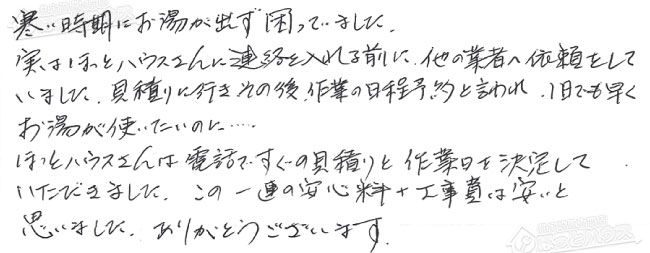 寒い時期にお湯が出ず困っていました。
実はほっとハウスさんに連絡を入れる前に、他の業者へ依頼をして
いました。見積りに行きその後、作業の日程予約と言われ、1日でも早く
お湯が使いたいのに……
ほっとハウスさんは電話ですぐの見積りと作業日を決定して
いただきました。この一連の安心料+工事費は安いと
思いました。ありがとうございます。